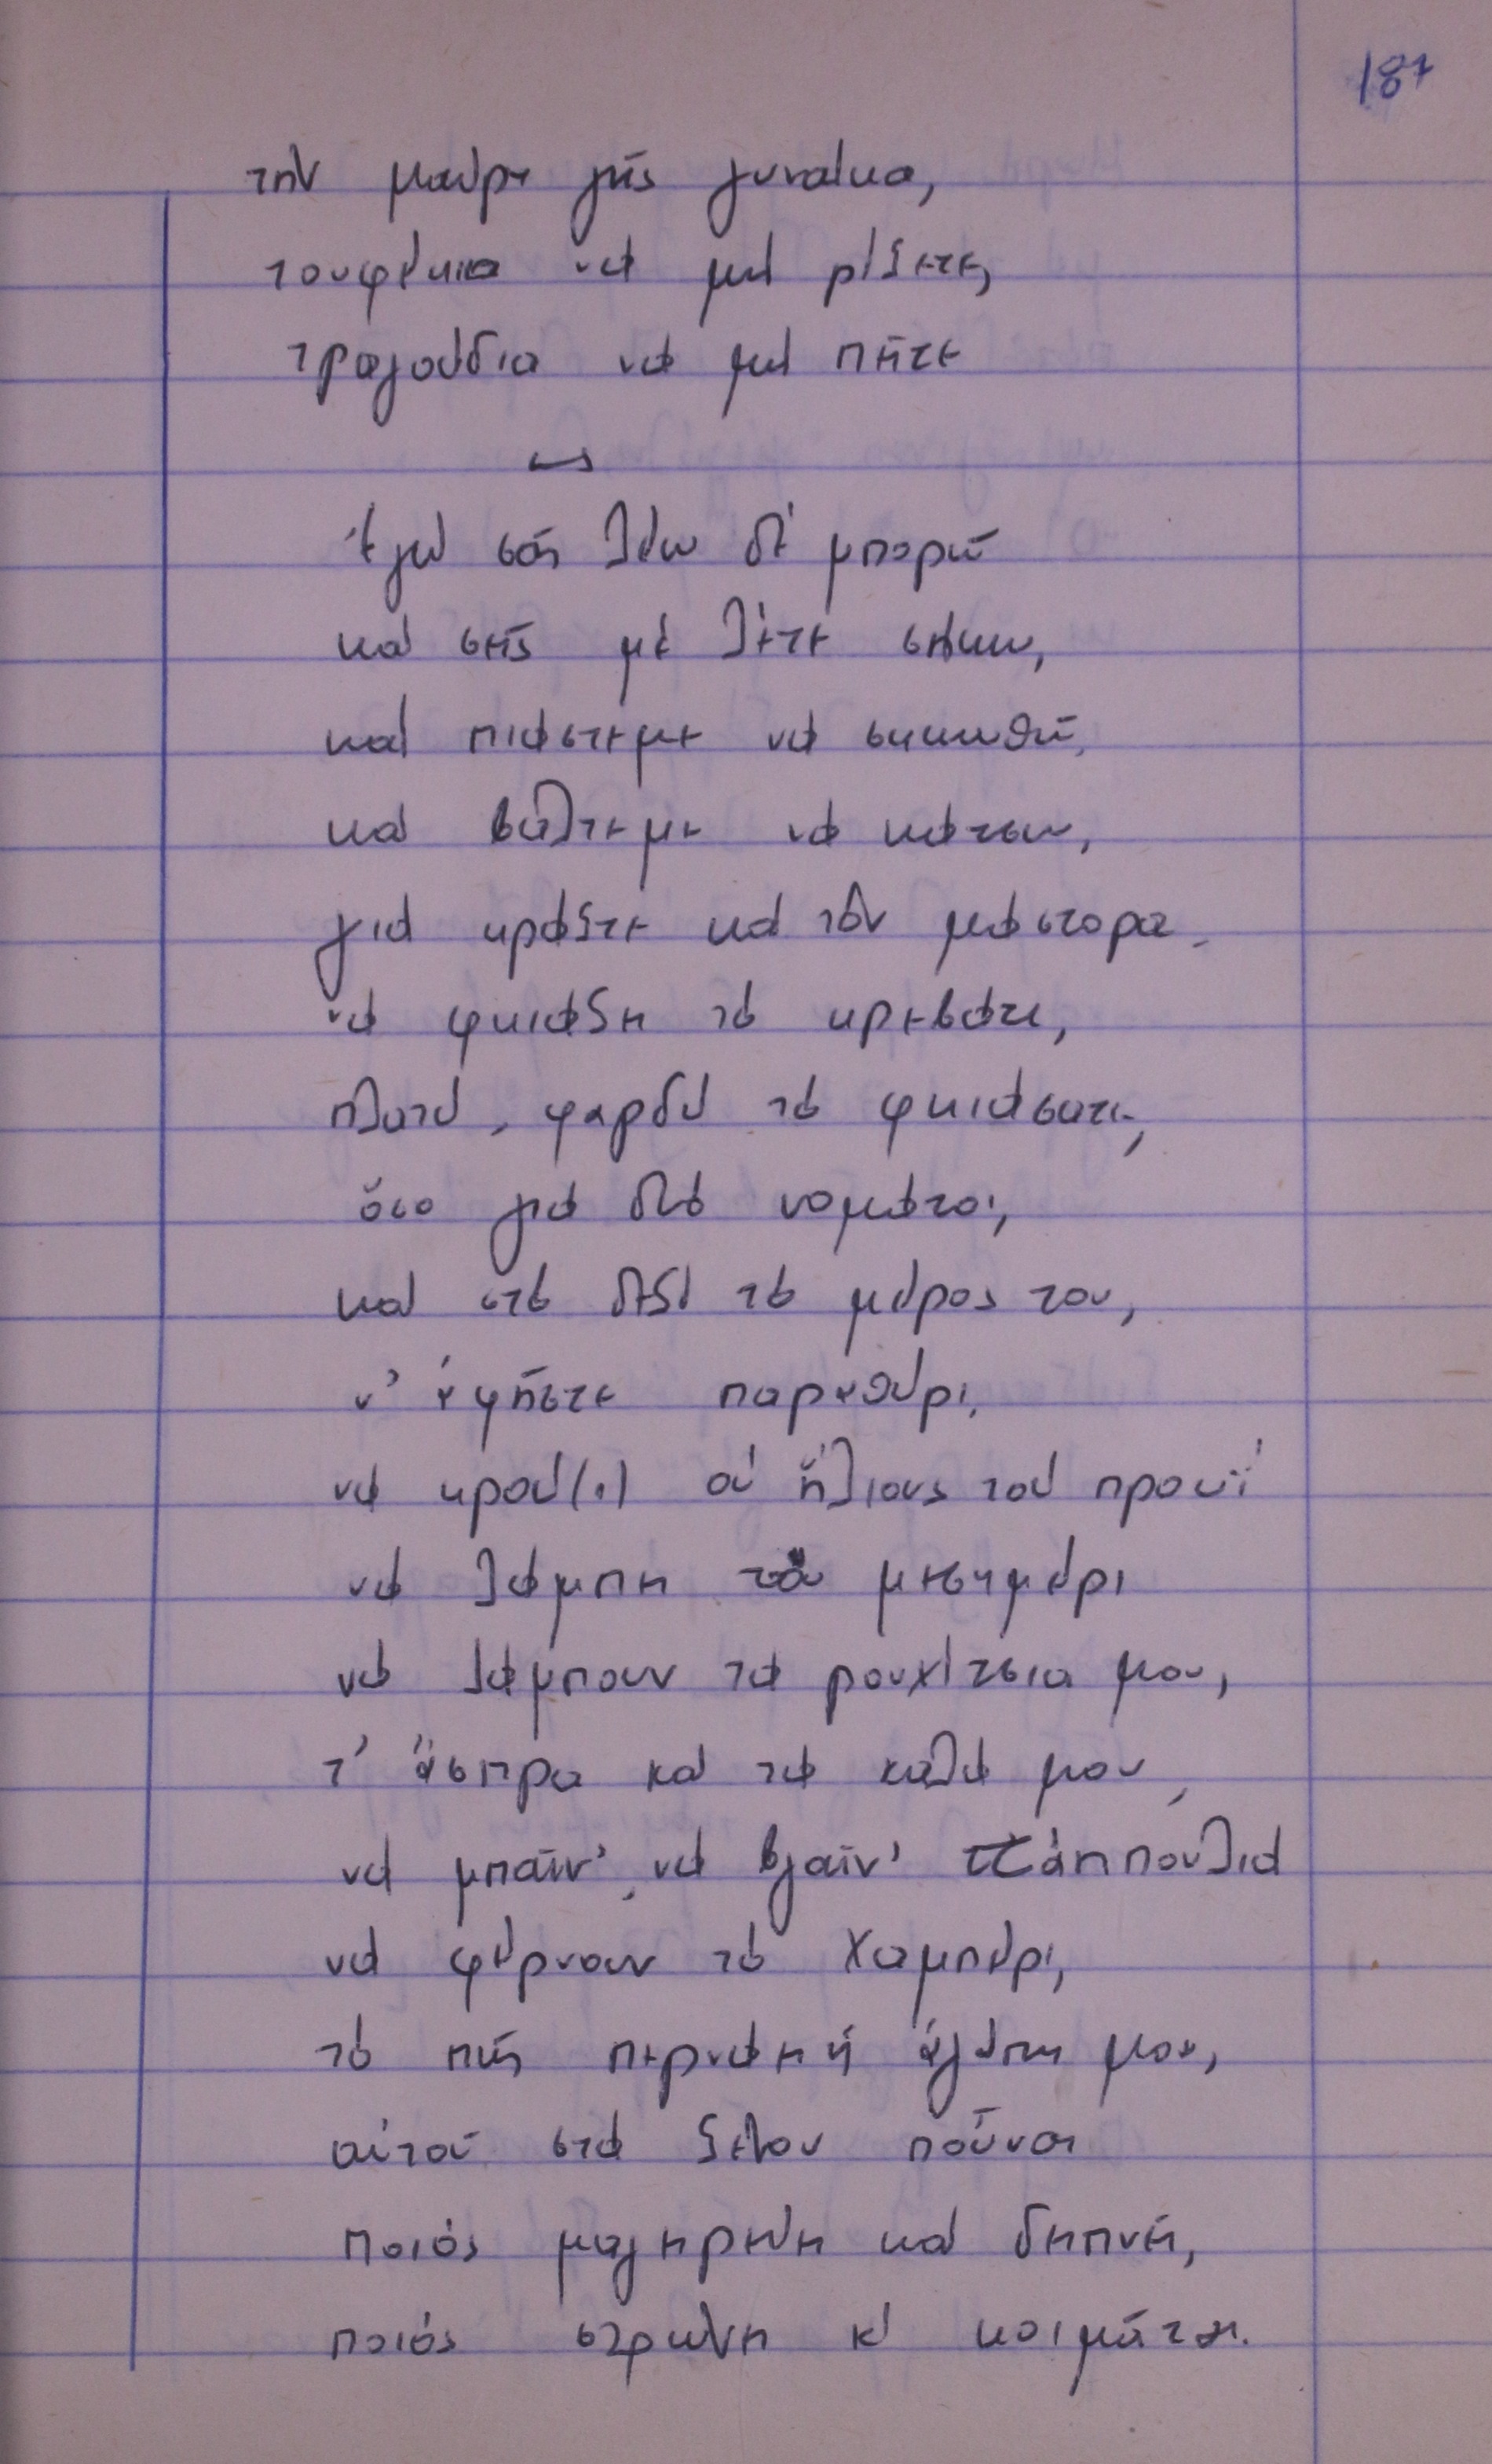 187
τὴν μαύρη γῆς γυναίκα,
τουφέκια νὰ μὴ ρίξετε,
τραγούδια νὰ μὴ πῆτε
ἐγὼ σᾶς λέω δὲ μπορῶ
καὶ σεῖς μὲ λέτε σήκω,
καὶ πιάστεμε νὰ σηκωθῶ,
καὶ βάλτεμε νὰ κάτσω,
γιὰ κράξτε καὶ τὸν μάστορα,
νὰ φκιάξη τὸ κρεβάτι,
πλατύ, φαρδὺ τὸ φκιάσατε,
ὅσο γιὰ δυὸ νομάτοι,
καὶ στὸ δεξὶ τὸ μέρος του,
ν' ἀφῆστε παραθύρι,
νὰ κρού(ι) οὑ ἥλιους τοὺ προυΐ
νὰ λάμπη τοὺ μεσημέρι
νὰ λάμπουν τὰ ρουχίτσια μου,
τ' ἄσπρα καὶ τὰ καλά μου,
νὰ μπαῖν', νὰ βγαῖν' πουλιὰ
νὰ φέρνουν τὸ χαμπέρι,
τὸ πῶς περνάει ἡ ἀγάπη μου,
αὐτοῦ στὰ ξένου ποὖναι
ποιὸς μαγειρεύει καὶ δειπνεῖ,
ποιὸς στρώνει κὶ κοιμᾶται.